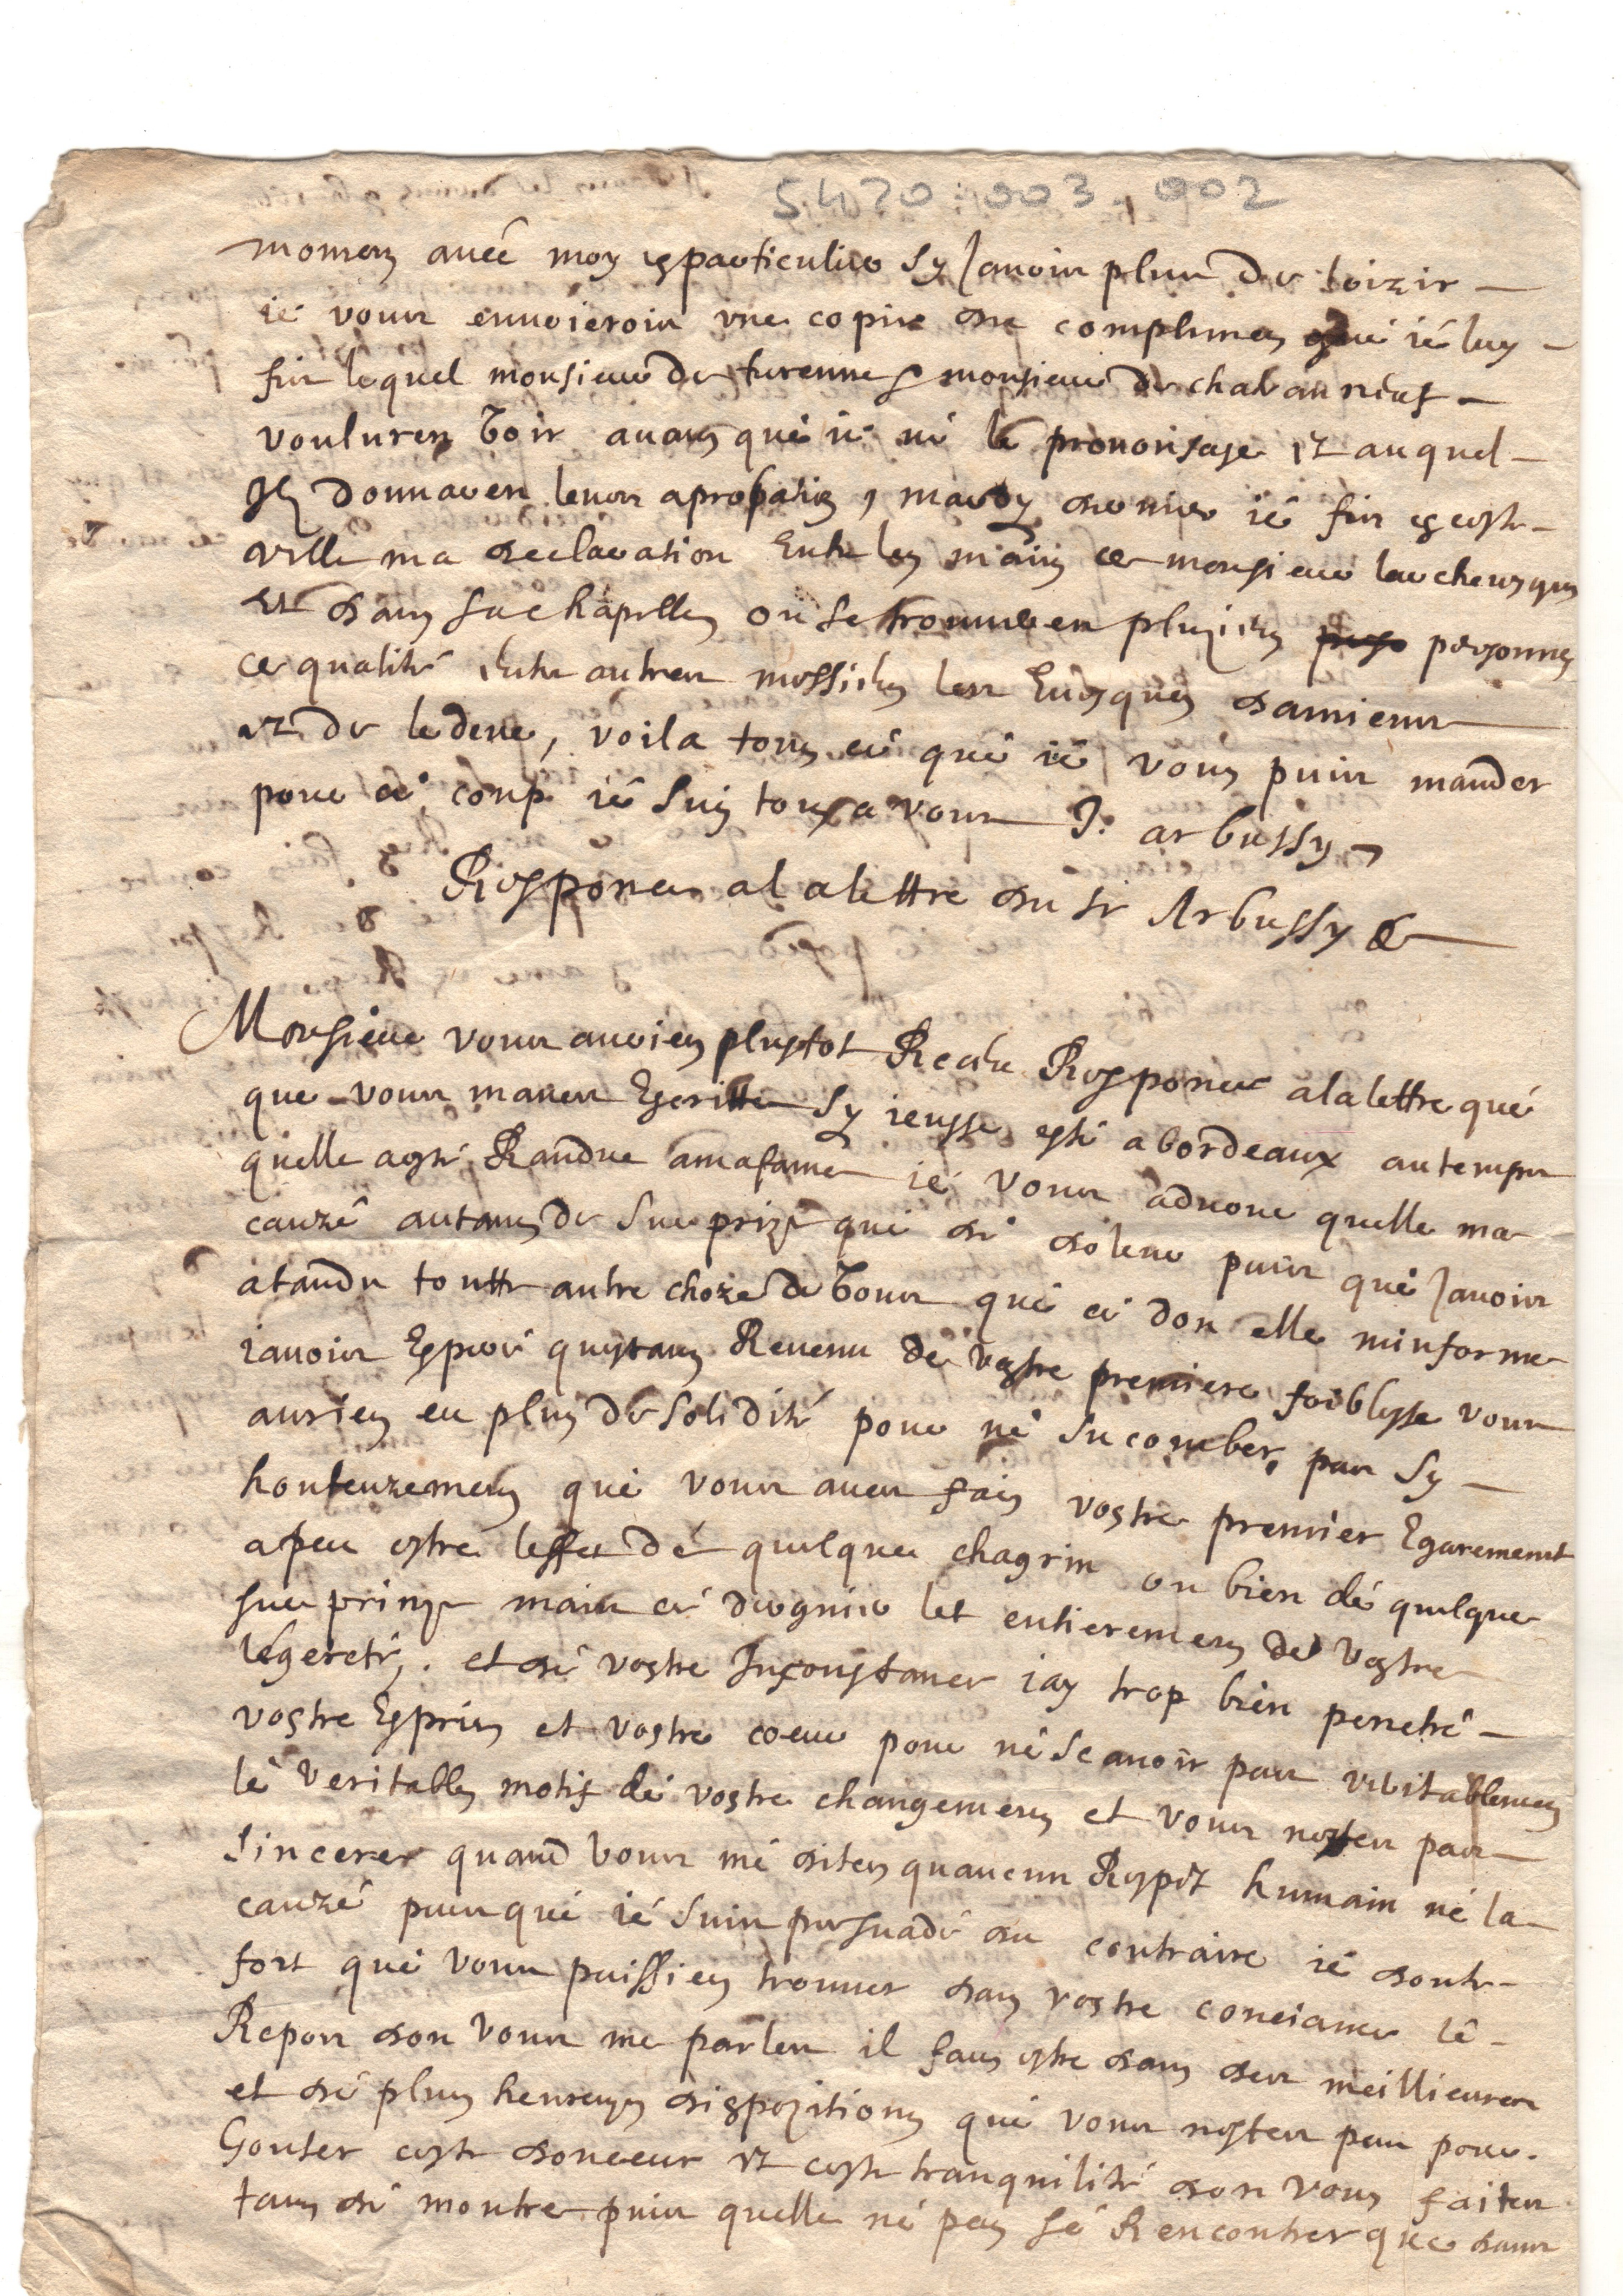 5470:003.002
momen avec moy en particulier sy javois plus de loizir
je vous ennoierois une copie du complimen que ie luy
fis lequel monsieur de turenne & monsieur de chatauneuf
voulurent voir avans que ie ne le prononsase et auquel
Ilz donnaren leurs aprobation, mardy dernier ie fis en ceste
ville ma declaration Entre les mains de monsieur larchevesque
et dans sa chapelle ou se trouveren pluzieurs persones
de qualité entre autres messieurs les Evesques damiens
et de lodeve, voila tous cé qué ié vous puis mander
pour cé coup ié suis tous a vous J. arbussy
Responce a la lettre du sr Arbussy
Monsieur vous auries plustot Receu Responce a la lettre qué
que vous maves Escritte sy ieusse esté a bordeaux au temps
quelle a esté Randue a ma fame ié vous advoue quelle ma
cauzé autans de surprize que dé doleur puis qué javois
atandu toutte autre choze de vous qué cé don elle minforme
iavois Esperé questans Revenu de vostre premiere foiblesse vous
auries eu plus de solidité pour né sucomber pas sy
honteuzemens qué vous aves fais vostre premier Egarement
a peu estre leffet dé quelque chagrin ou bien dé quelque
surprinze mais cé dernier let entieremens de vostre
légereté, et dé vostre Inconstance iay trop bien penetré
vostre Espris et vostre coeur pour né scavoir pas veritablemens
lé veritable motif dé vostre changemens et vous nestes pas
sinceres quand vous mé dites quaucun Respet humain né la
cauzé puisqué ié suis persuadé du contraire ié doute
fort qué vous puissies trouver dans vostre conciance lé
Repos don vous me parles il faus estre dans des meillieures
et dé plus heureuzes dispozitions qué vous nestes pas pour
Gouter ceste douceur et ceste tranquilité don vous faites
tans dé montre puis quelle né peu sé Rencontrer que dans